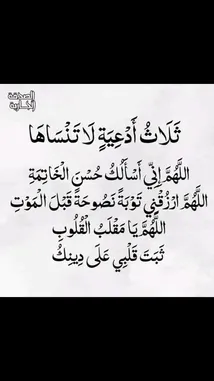 الصدقة
الجارية
ثَلَاثُ أَدْعِيَةٍ لَا تَنْسَاهَا
اللَّهُمَّ إِنِّي أَسْأَلُكَ حُسْنَ الْخَاتِمَةِ
اللَّهُمَّ ارْزُقْنِي تَوْبَةً نَصُوحَةً قَبْلَ الْمَوْتِ
اللَّهُمَّ يَا مَقْلَبُ الْقُلُوبِ
ثَبَتَ قَلْبِي عَلَى دِينِكُ